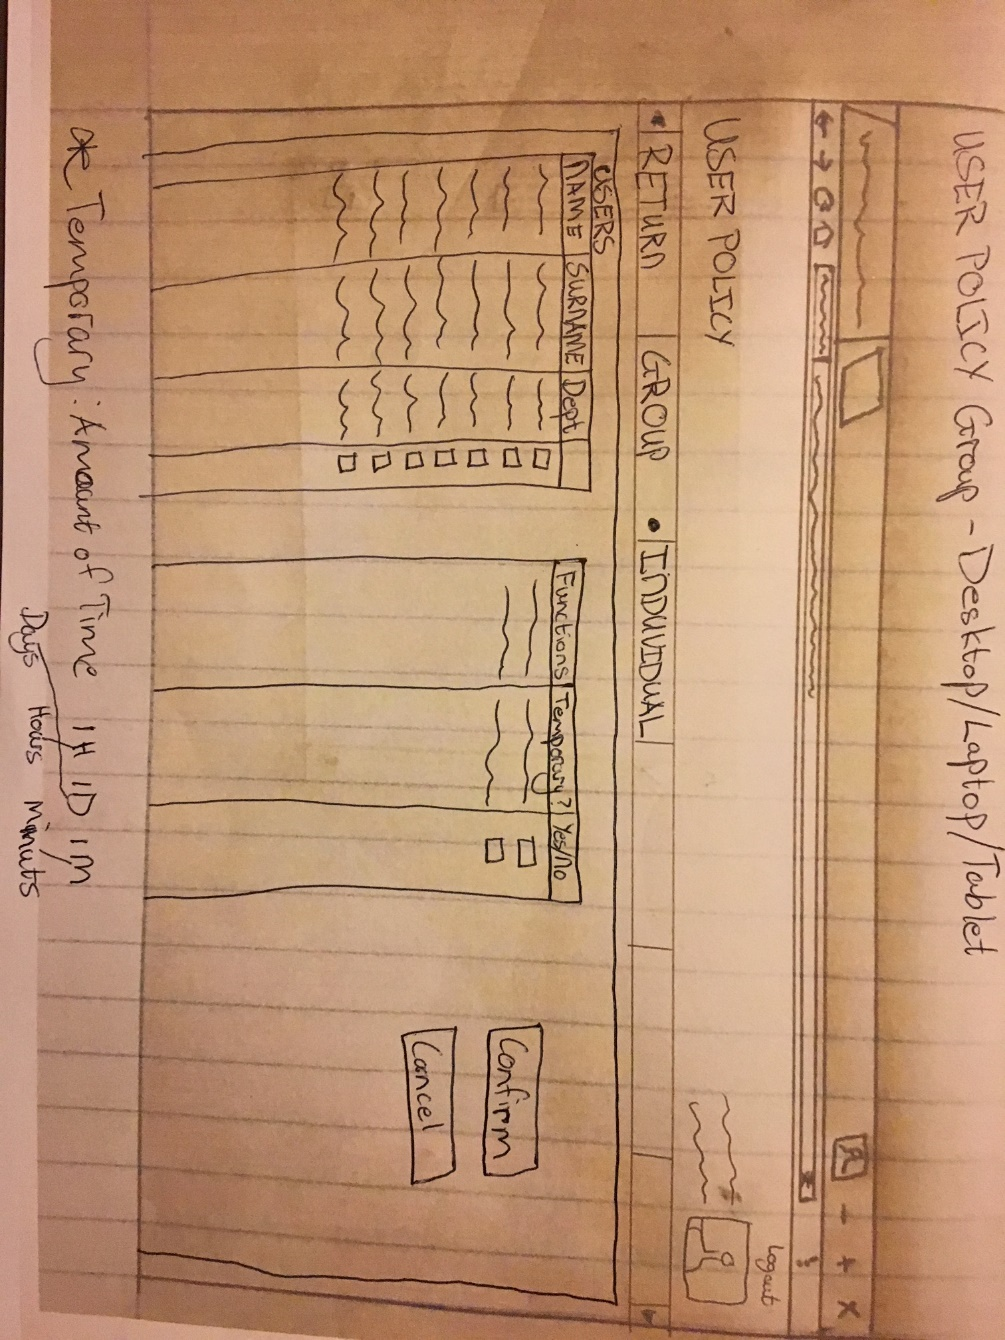 USER POLICY Group - Desktop/Laptop/Tablet
Logout
USER POLICY
RETURN GROUP • INDUVIDUAL
USERS
NAME SURNAME Dept
Functions Temporary? Yes/No
Confirm
Cancel
* Temporary: Amount of Time 1H 1D 1M
Days Hours Minuts